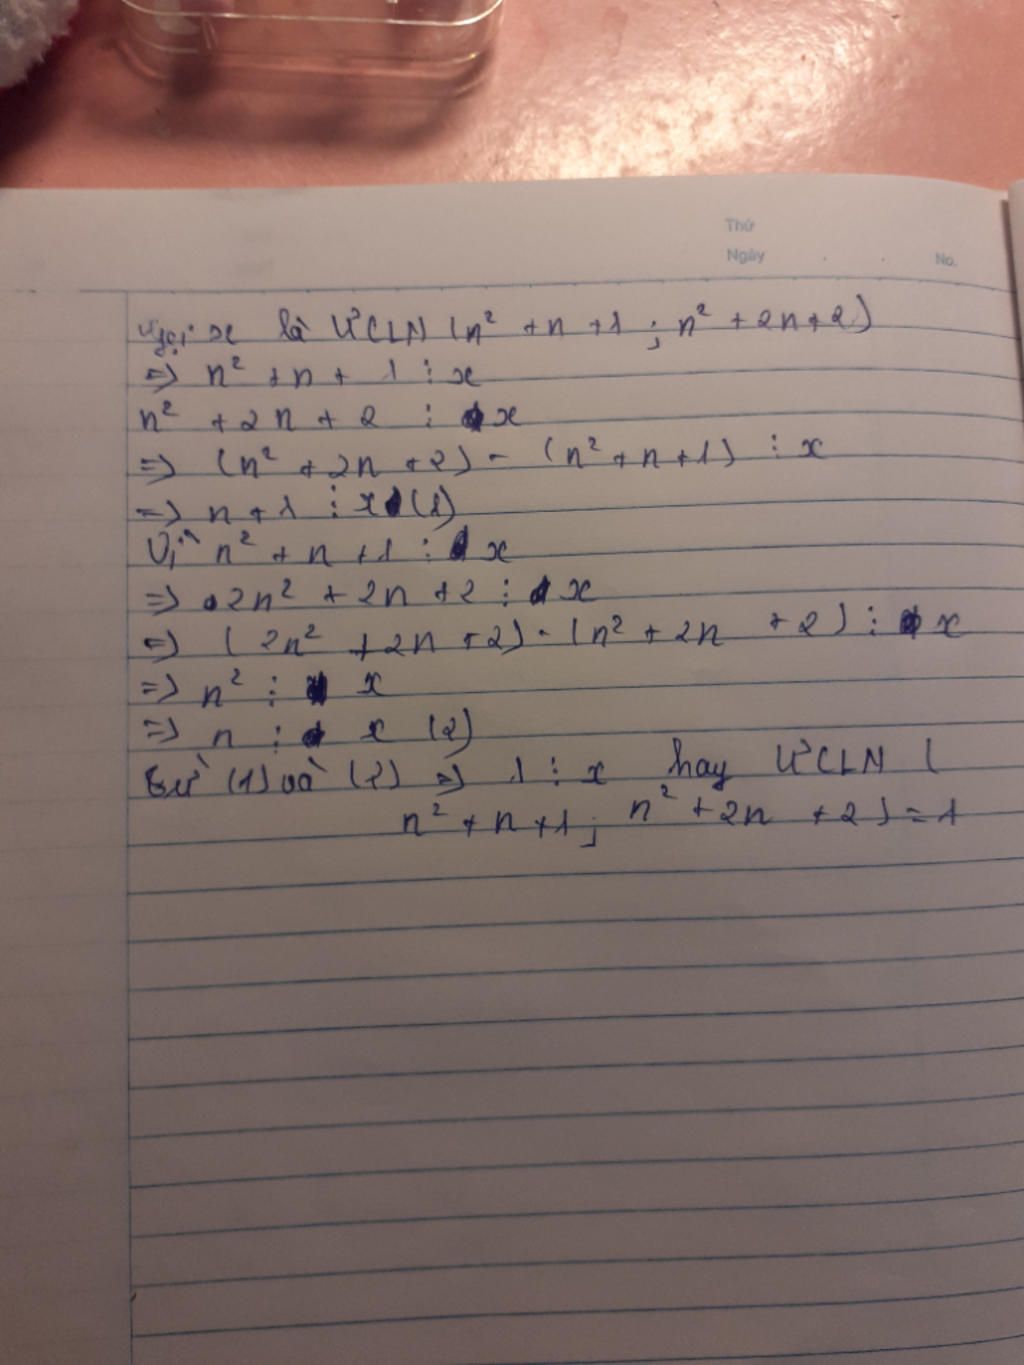 Thứ
Ngày . . No.
Gọi x là ƯCLN (n² + n + 1 ; n² + 2n + 2)
=> n² + n + 1 ⋮ x
n² + 2n + 2 ⋮ x
=> (n² + 2n + 2) - (n² + n + 1) ⋮ x
=> n + 1 ⋮ x (1)
Vì n² + n + 1 ⋮ x
=> 2n² + 2n + 2 ⋮ x
=> (2n² + 2n + 2) - (n² + 2n + 2) ⋮ x
=> n² ⋮ x
=> n ⋮ x (2)
Từ (1) và (2) => 1 ⋮ x hay ƯCLN (
n² + n + 1 ; n² + 2n + 2) = 1